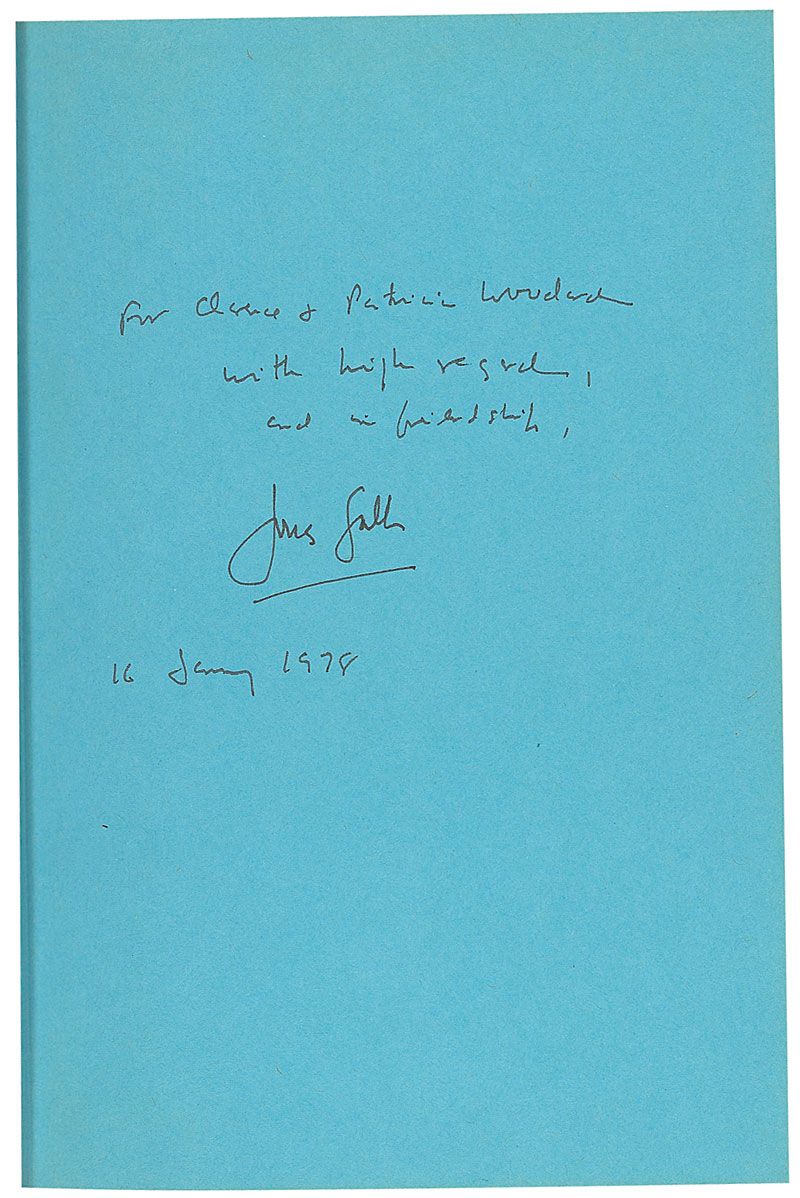 For Clarence & Patricia Woodard
with high regard,
and in friendship,
Jonas Salk
16 January 1978